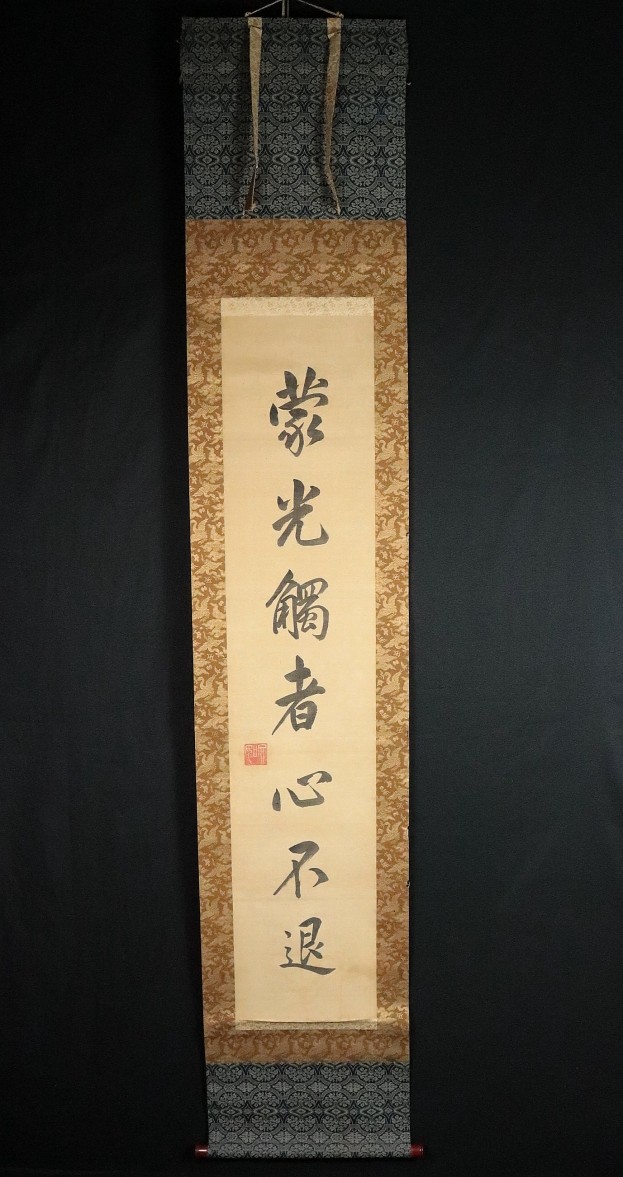 蒙光觸者心不退